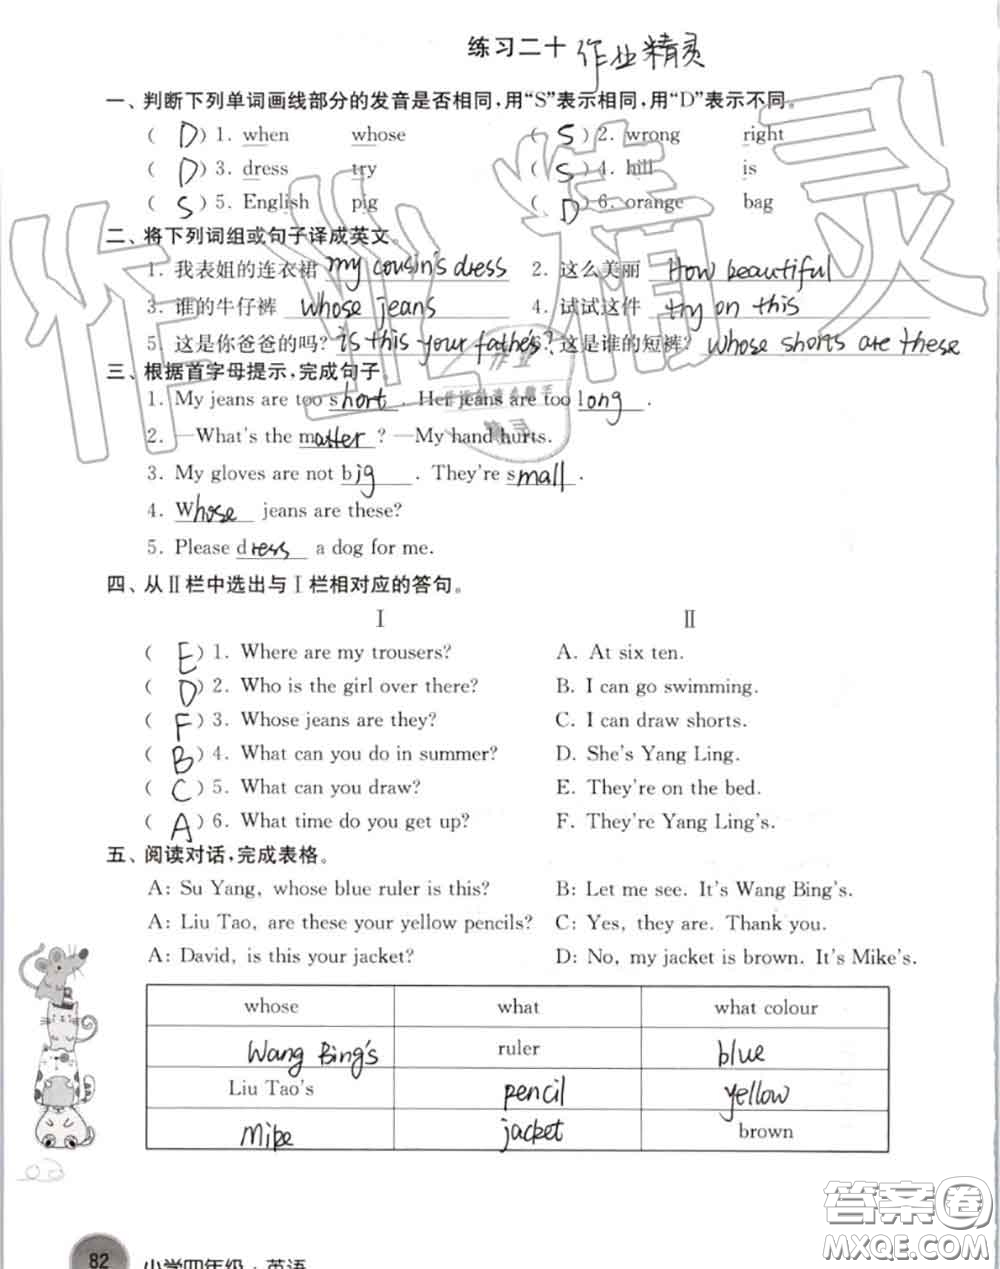 练习二十 作业精灵
一、判断下列单词画线部分的发音是否相同,用“S”表示相同,用“D”表示不同。
( D ) 1. when whose ( S ) 2. wrong right
( D ) 3. dress try ( S ) 4. hill is
( S ) 5. English pig ( D ) 6. orange bag
二、将下列词组或句子译成英文。
1. 我表姐的连衣裙 my cousin's dress 2. 这么美丽 How beautiful
3. 谁的牛仔裤 whose jeans 4. 试试这件 try on this
5. 这是你爸爸的吗? is this your father's? 6. 这是谁的短裤? whose shorts are these
三、根据首字母提示,完成句子。
1. My jeans are too short. Her jeans are too long.
2. —What's the matter? —My hand hurts.
3. My gloves are not big. They're small.
4. Whose jeans are these?
5. Please dress a dog for me.
四、从Ⅱ栏中选出与Ⅰ栏相对应的答句。
Ⅰ Ⅱ
( E ) 1. Where are my trousers? A. At six ten.
( D ) 2. Who is the girl over there? B. I can go swimming.
( F ) 3. Whose jeans are they? C. I can draw shorts.
( B ) 4. What can you do in summer? D. She's Yang Ling.
( C ) 5. What can you draw? E. They're on the bed.
( A ) 6. What time do you get up? F. They're Yang Ling's.
五、阅读对话,完成表格。
A: Su Yang, whose blue ruler is this? B: Let me see. It's Wang Bing's.
A: Liu Tao, are these your yellow pencils? C: Yes, they are. Thank you.
A: David, is this your jacket? D: No, my jacket is brown. It's Mike's.
whose what what colour
Wang Bing's ruler blue
Liu Tao's pencil yellow
Mike jacket brown
82 小学四年级·英语
作业精灵
答案卷
MXQE.COM